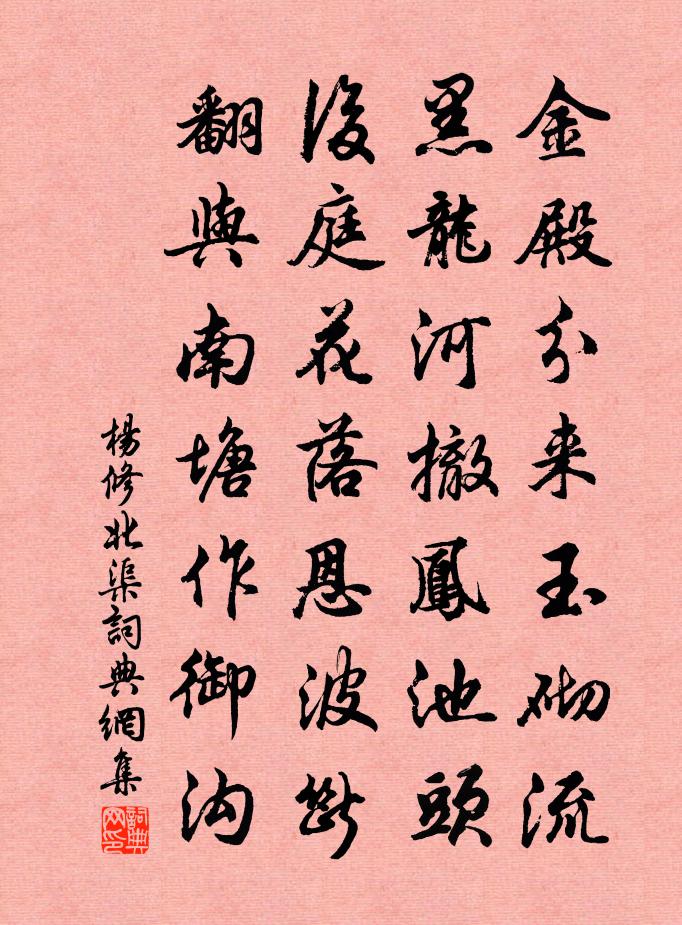 金殿分来玉砌流
黑龍河撤鳳池頭
後庭花落恩波斷
翻與南塘作御溝
楊修北渠詞典網集
詞典网印